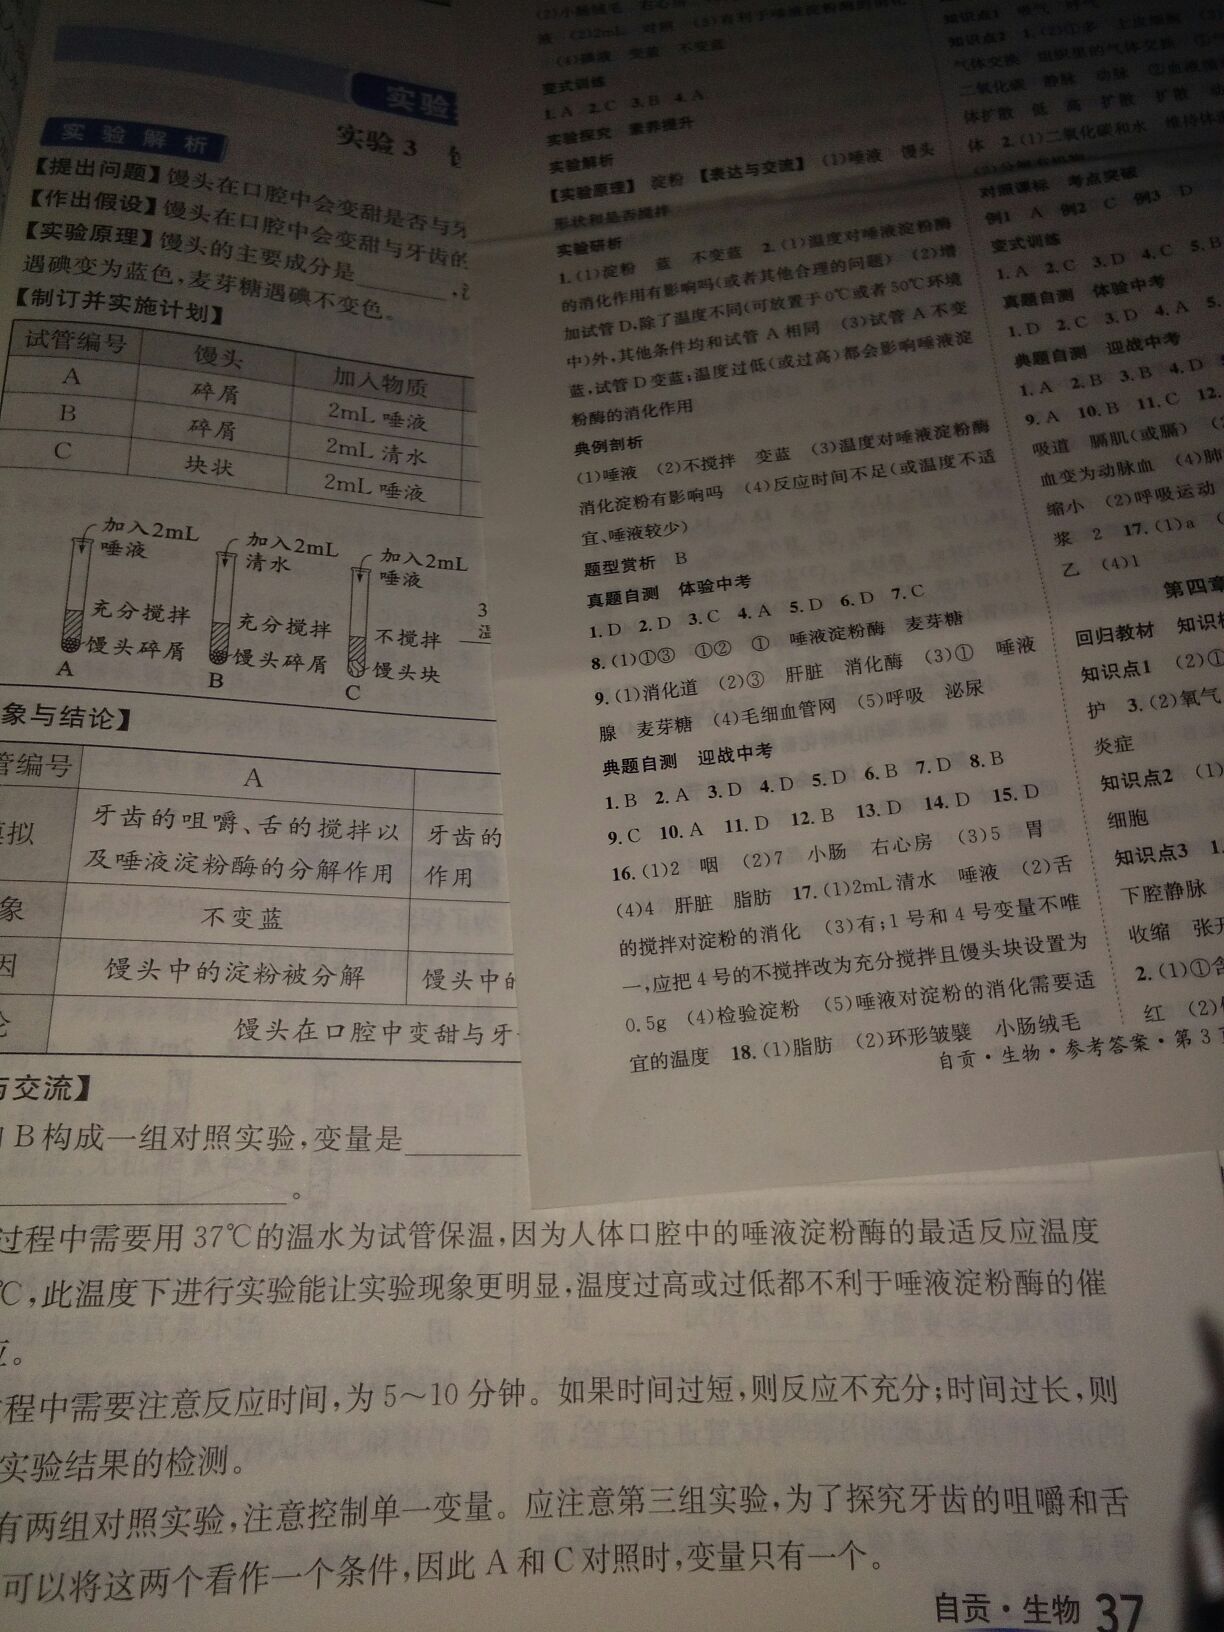 实验
实验解析
实验3
【提出问题】馒头在口腔中会变甜是否与牙
【作出假设】馒头在口腔中会变甜与牙齿的
【实验原理】馒头的主要成分是
遇碘变为蓝色,麦芽糖遇碘不变色。
【制订并实施计划】
试管编号 馒头 加入物质
A 碎屑 2mL 唾液
B 碎屑 2mL 清水
C 块状 2mL 唾液
加入2mL 唾液
充分搅拌
馒头碎屑
A
加入2mL 清水
充分搅拌
馒头碎屑
B
加入2mL 唾液
不搅拌
馒头块
C
象与结论】
管编号 A
模拟 牙齿的咀嚼、舌的搅拌以 牙齿的
及唾液淀粉酶的分解作用 作用
象 不变蓝
因 馒头中的淀粉被分解 馒头中的
论 馒头在口腔中变甜与牙
与交流】
B构成一组对照实验,变量是
。
过程中需要用 37℃的温水为试管保温,因为人体口腔中的唾液淀粉酶的最适反应温度
℃,此温度下进行实验能让实验现象更明显,温度过高或过低都不利于唾液淀粉酶的催
应。
程中需要注意反应时间,为 5～10 分钟。如果时间过短,则反应不充分;时间过长,则
实验结果的检测。
有两组对照实验,注意控制单一变量。应注意第三组实验,为了探究牙齿的咀嚼和舌
可以将这两个看作一个条件,因此 A 和 C 对照时,变量只有一个。
自贡·生物 37
液 (2)2mL 对照 (3)有利于唾液淀粉酶的消化
(4)碘液 变蓝 不变蓝
变式训练
1. A 2. C 3. B 4. A
实验探究 素养提升
实验解析
【实验原理】 淀粉 【表达与交流】 (1)唾液 馒头
形状和是否搅拌
实验研析
1. (1)淀粉 蓝 不变蓝 2. (1)温度对唾液淀粉酶
的消化作用有影响吗(或者其他合理的问题) (2)增
加试管 D,除了温度不同(可放置于0℃或者50℃环境
中)外,其他条件均和试管 A 相同 (3)试管 A 不变
蓝,试管 D 变蓝;温度过低(或过高)都会影响唾液淀
粉酶的消化作用
典例剖析
(1)唾液 (2)不搅拌 变蓝 (3)温度对唾液淀粉酶
消化淀粉有影响吗 (4)反应时间不足(或温度不适
宜、唾液较少)
题型赏析 B
真题自测 体验中考
1. D 2. D 3. C 4. A 5. D 6. D 7. C
8. (1)①③ ①② ① 唾液淀粉酶 麦芽糖
9. (1)消化道 (2)③ 肝脏 消化酶 (3)① 唾液
腺 麦芽糖 (4)毛细血管网 (5)呼吸 泌尿
典题自测 迎战中考
1. B 2. A 3. D 4. D 5. D 6. B 7. D 8. B
9. C 10. A 11. D 12. B 13. D 14. D 15. D
16. (1)2 咽 (2)7 小肠 右心房 (3)5 胃
(4)4 肝脏 脂肪 17. (1)2mL 清水 唾液 (2)舌
的搅拌对淀粉的消化 (3)有;1 号和 4 号变量不唯
一,应把 4 号的不搅拌改为充分搅拌且馒头块设置为
0.5g (4)检验淀粉 (5)唾液对淀粉的消化需要适
宜的温度 18. (1)脂肪 (2)环形皱襞 小肠绒毛
自贡·生物·参考答案·第 3
知识点1
知识点2 1. (2)①多
气体交换 组织里的气体交换
二氧化碳 静脉 动脉
体扩散 低 高 扩散 扩散
体 2. (1)二氧化碳和水
对照课标 考点突破
例1 A 例2 C 例3 D
变式训练
1. A 2. C 3. D 4. C 5. B
真题自测 体验中考
1. D 2. C 3. D 4. A 5.
典题自测 迎战中考
1. A 2. B 3. B 4. D
9. A 10. B 11. C 12.
吸道 膈肌(或膈)
血变为动脉血 (4)肺
缩小 (2)呼吸运动
浆 2 17. (1)a
乙 (4)1
第四章
回归教材 知识
知识点1 (2)①
护 3. (2)氧气
炎症
知识点2 (1)
细胞
知识点3 1.
下腔静脉
收缩
2. (1)①
红 (2)